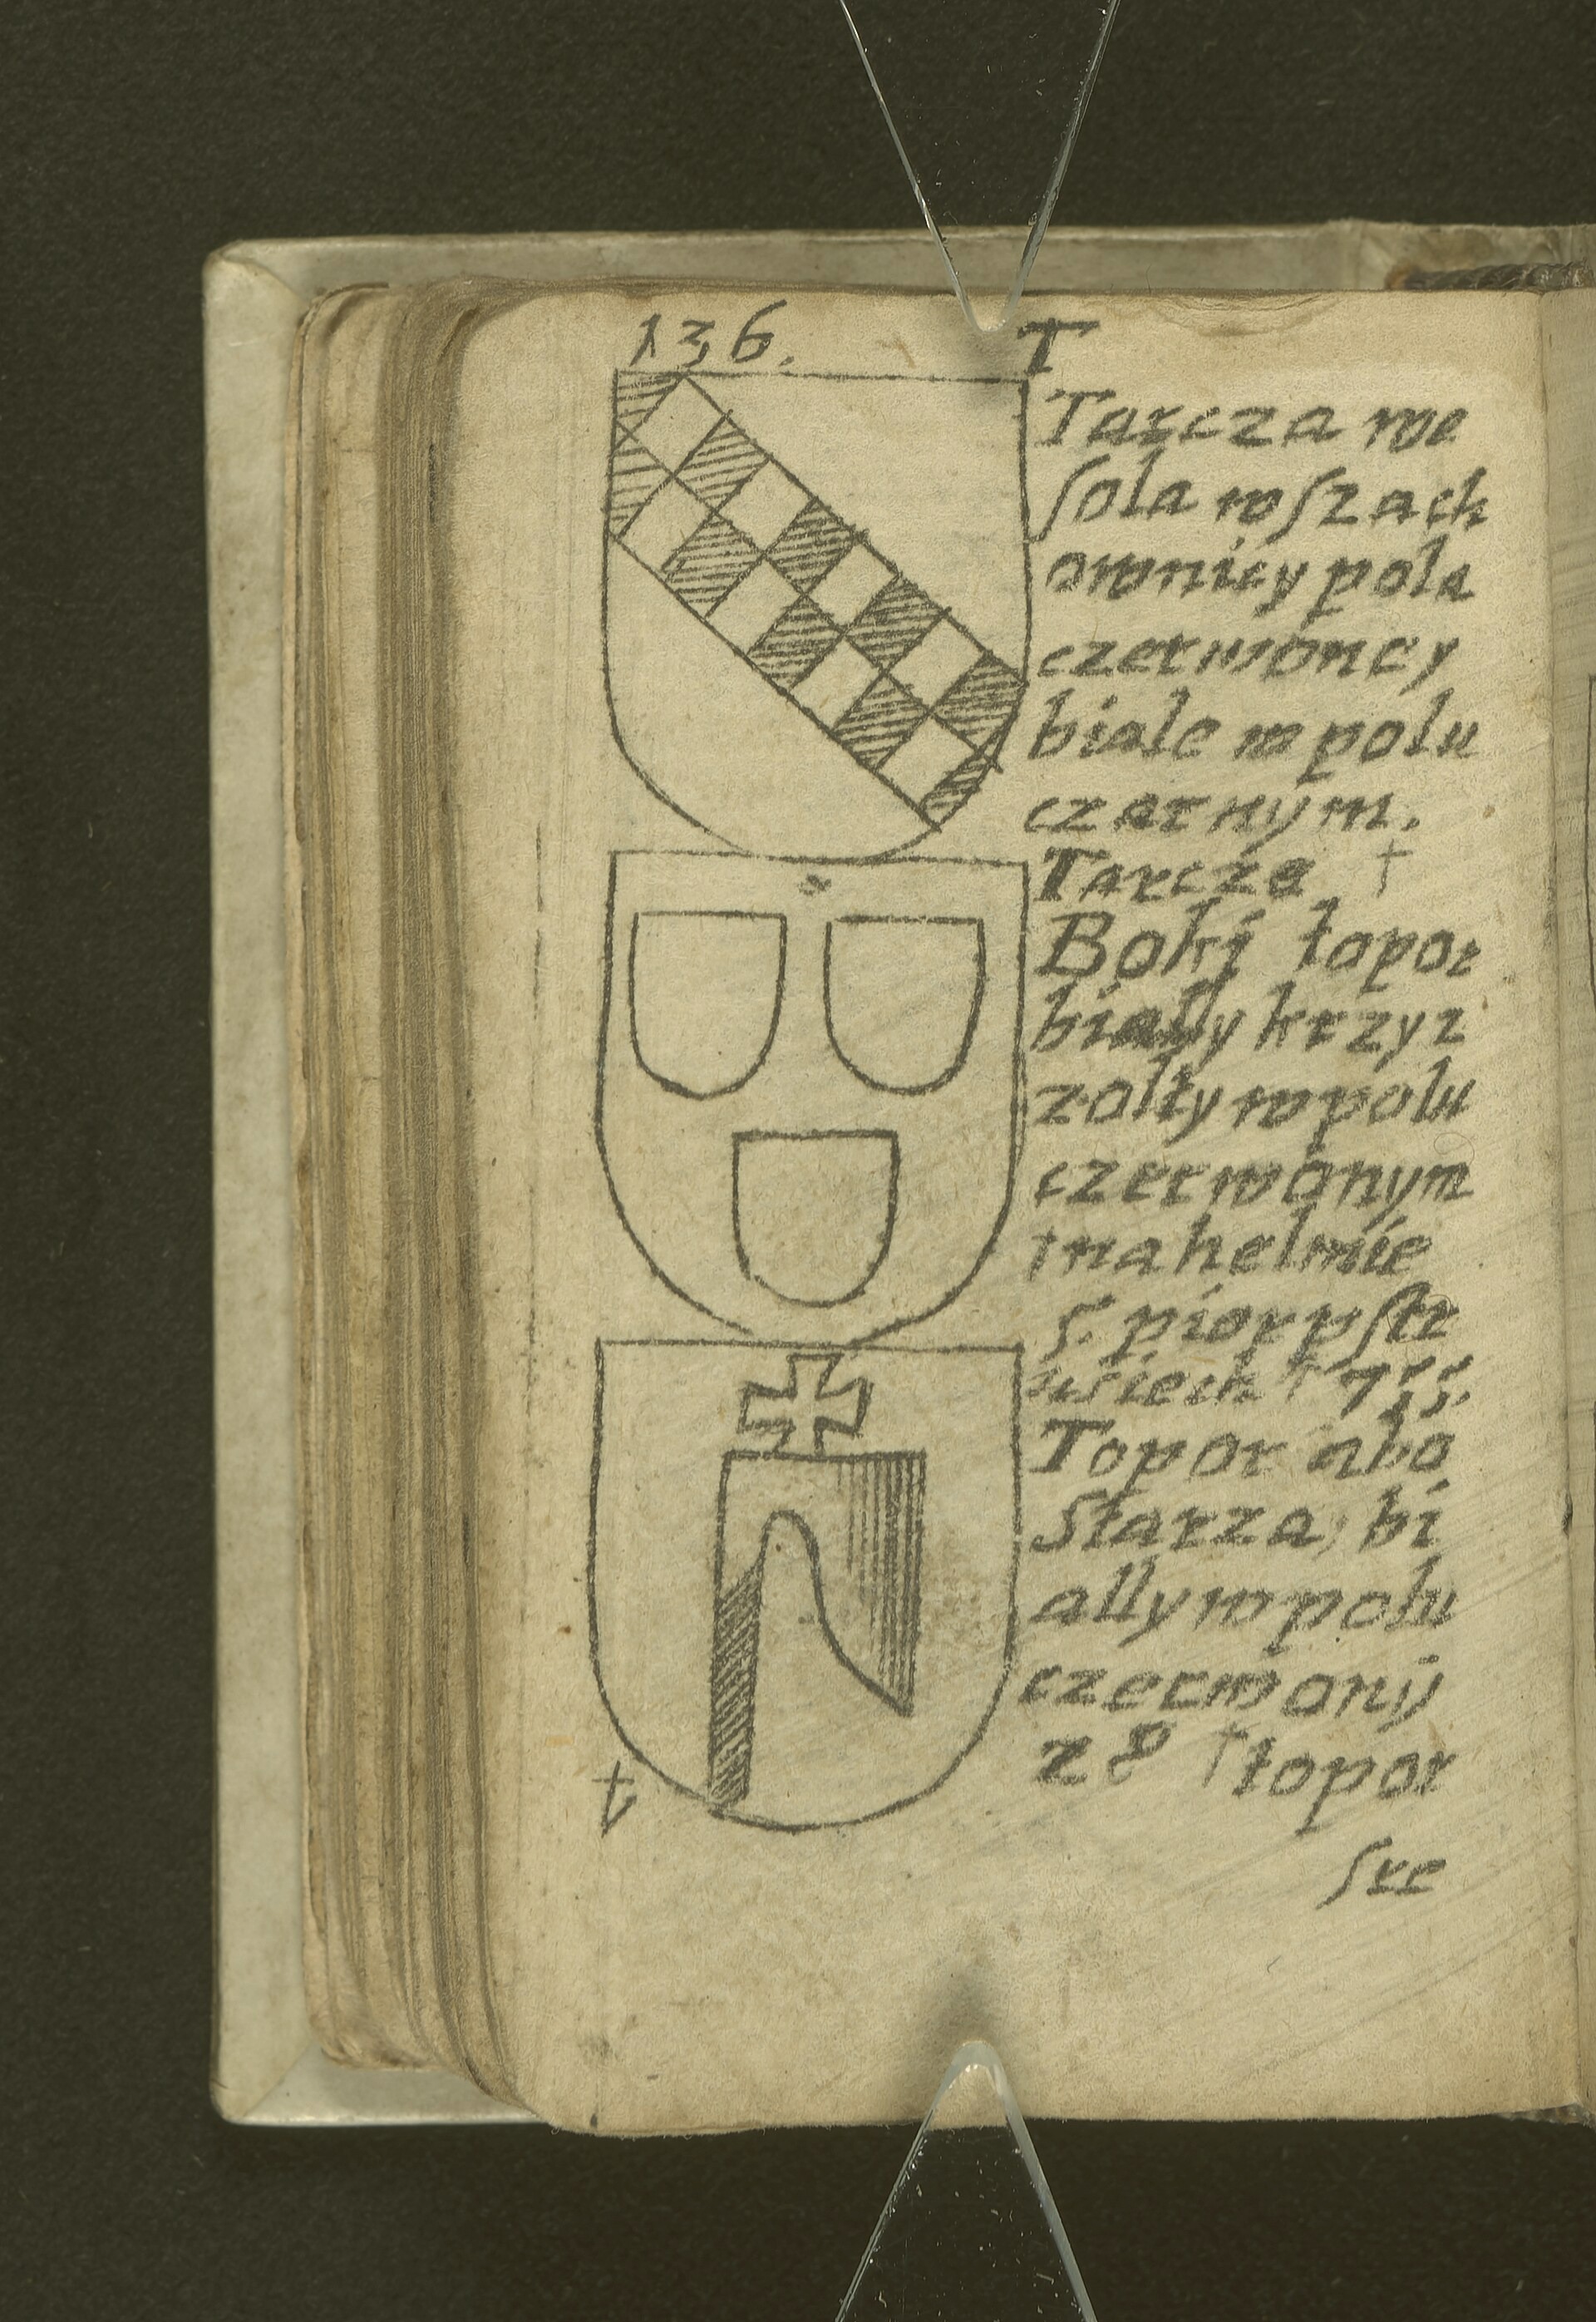 136.
T
Tarcza we
ſola wſzach
ownicy pola
czerwoney
biale w polu
czarnym.
Tarcza †
Bokj topor
bially krzyz
zolty w polu
czerwonym
† na helmie
5. pior pſtr
usiech †
Topor abo
Starza, bi
ally w polu
czerwonij
z 8 † topor
ſke